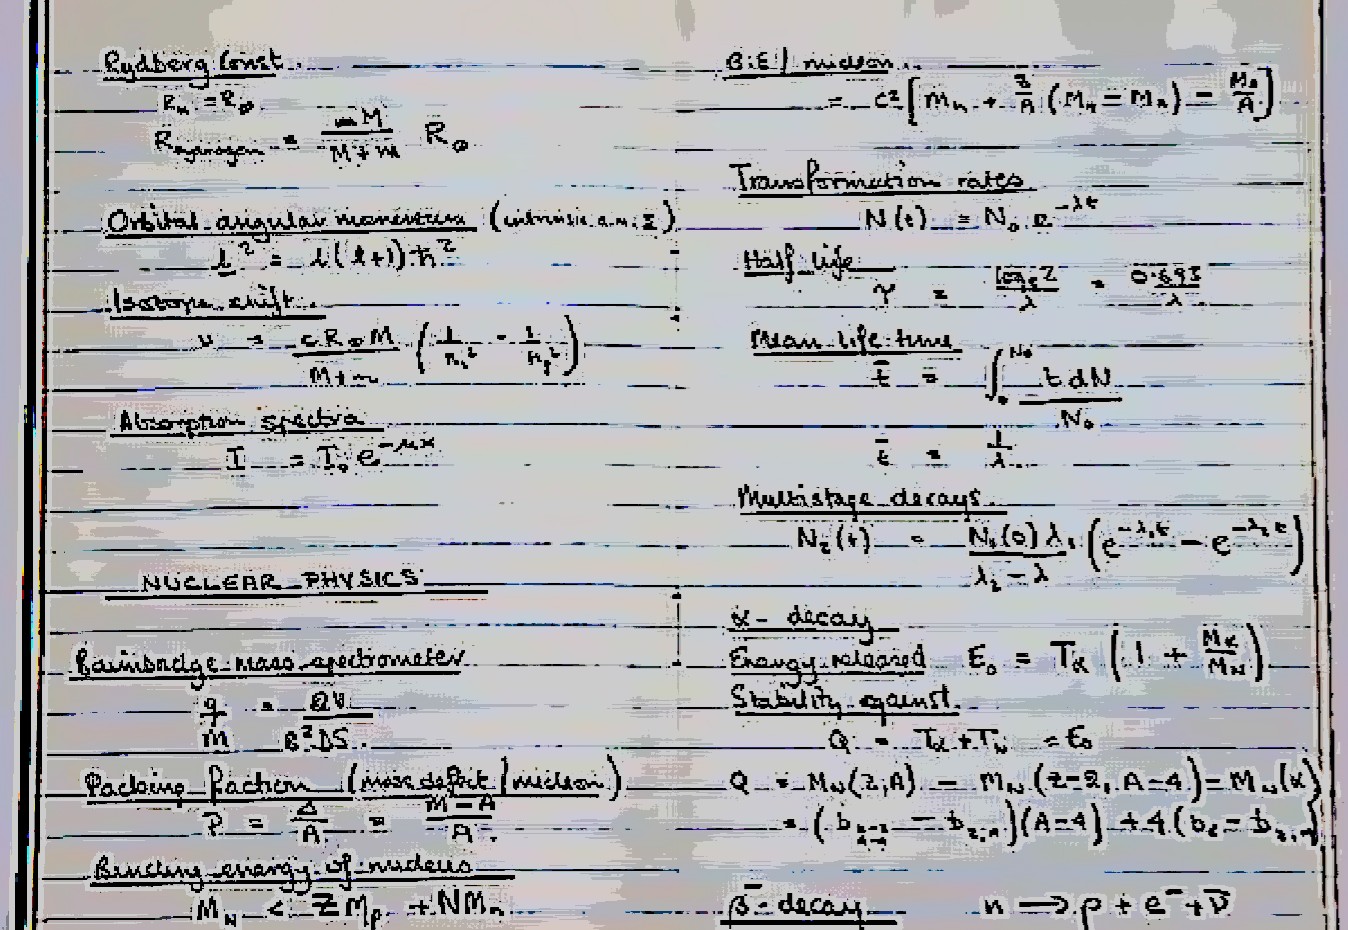 Rydberg Const.
R_H = R_∞
R_hydrogen = M / M + m R_∞
Orbital angular momentum (intrinsic a.m. Σ)
l² = l(l+1)ħ²
Isotope shift
ν = cR_∞M / M+m (1/n_i² - 1/n_f²)
Absorption spectra
I = I₀ e^-μx
NUCLEAR PHYSICS
Bainbridge mass spectrometer
q/m = 2V / B²DS.
Packing fraction (mass defect / nucleon)
P = Δ/A = M-A / A
Binding energy of nucleus
M_N < Z M_p + N M_n
B.E / nucleon
= c² [m_n + Z/A (M_n - M_n) - M_a/A]
Transformation rates
N(t) = N₀ e^-λt
Half life
τ = log_e 2 / λ = 0.693 / λ
Mean life time
t̄ = ∫₀^N₀ t dN / N₀
t̄ = 1/λ
Multistage decays
N₂(t) = N₁(0) λ₁ / λ₂ - λ (e^-λ₁t - e^-λ₂t)
α - decay
Energy released E₀ = T_α (1 + M_α/M_N)
Stability against
Q = T_α + T_N = E₀
Q = M_N(Z,A) - M_N(Z-2, A-4) - M_N(α)
= (b_Z-2,A-4 - b_Z,A)(A-4) + 4(b_α - b_Z,A)
β⁻ - decay n → p + e⁻ + ν̄